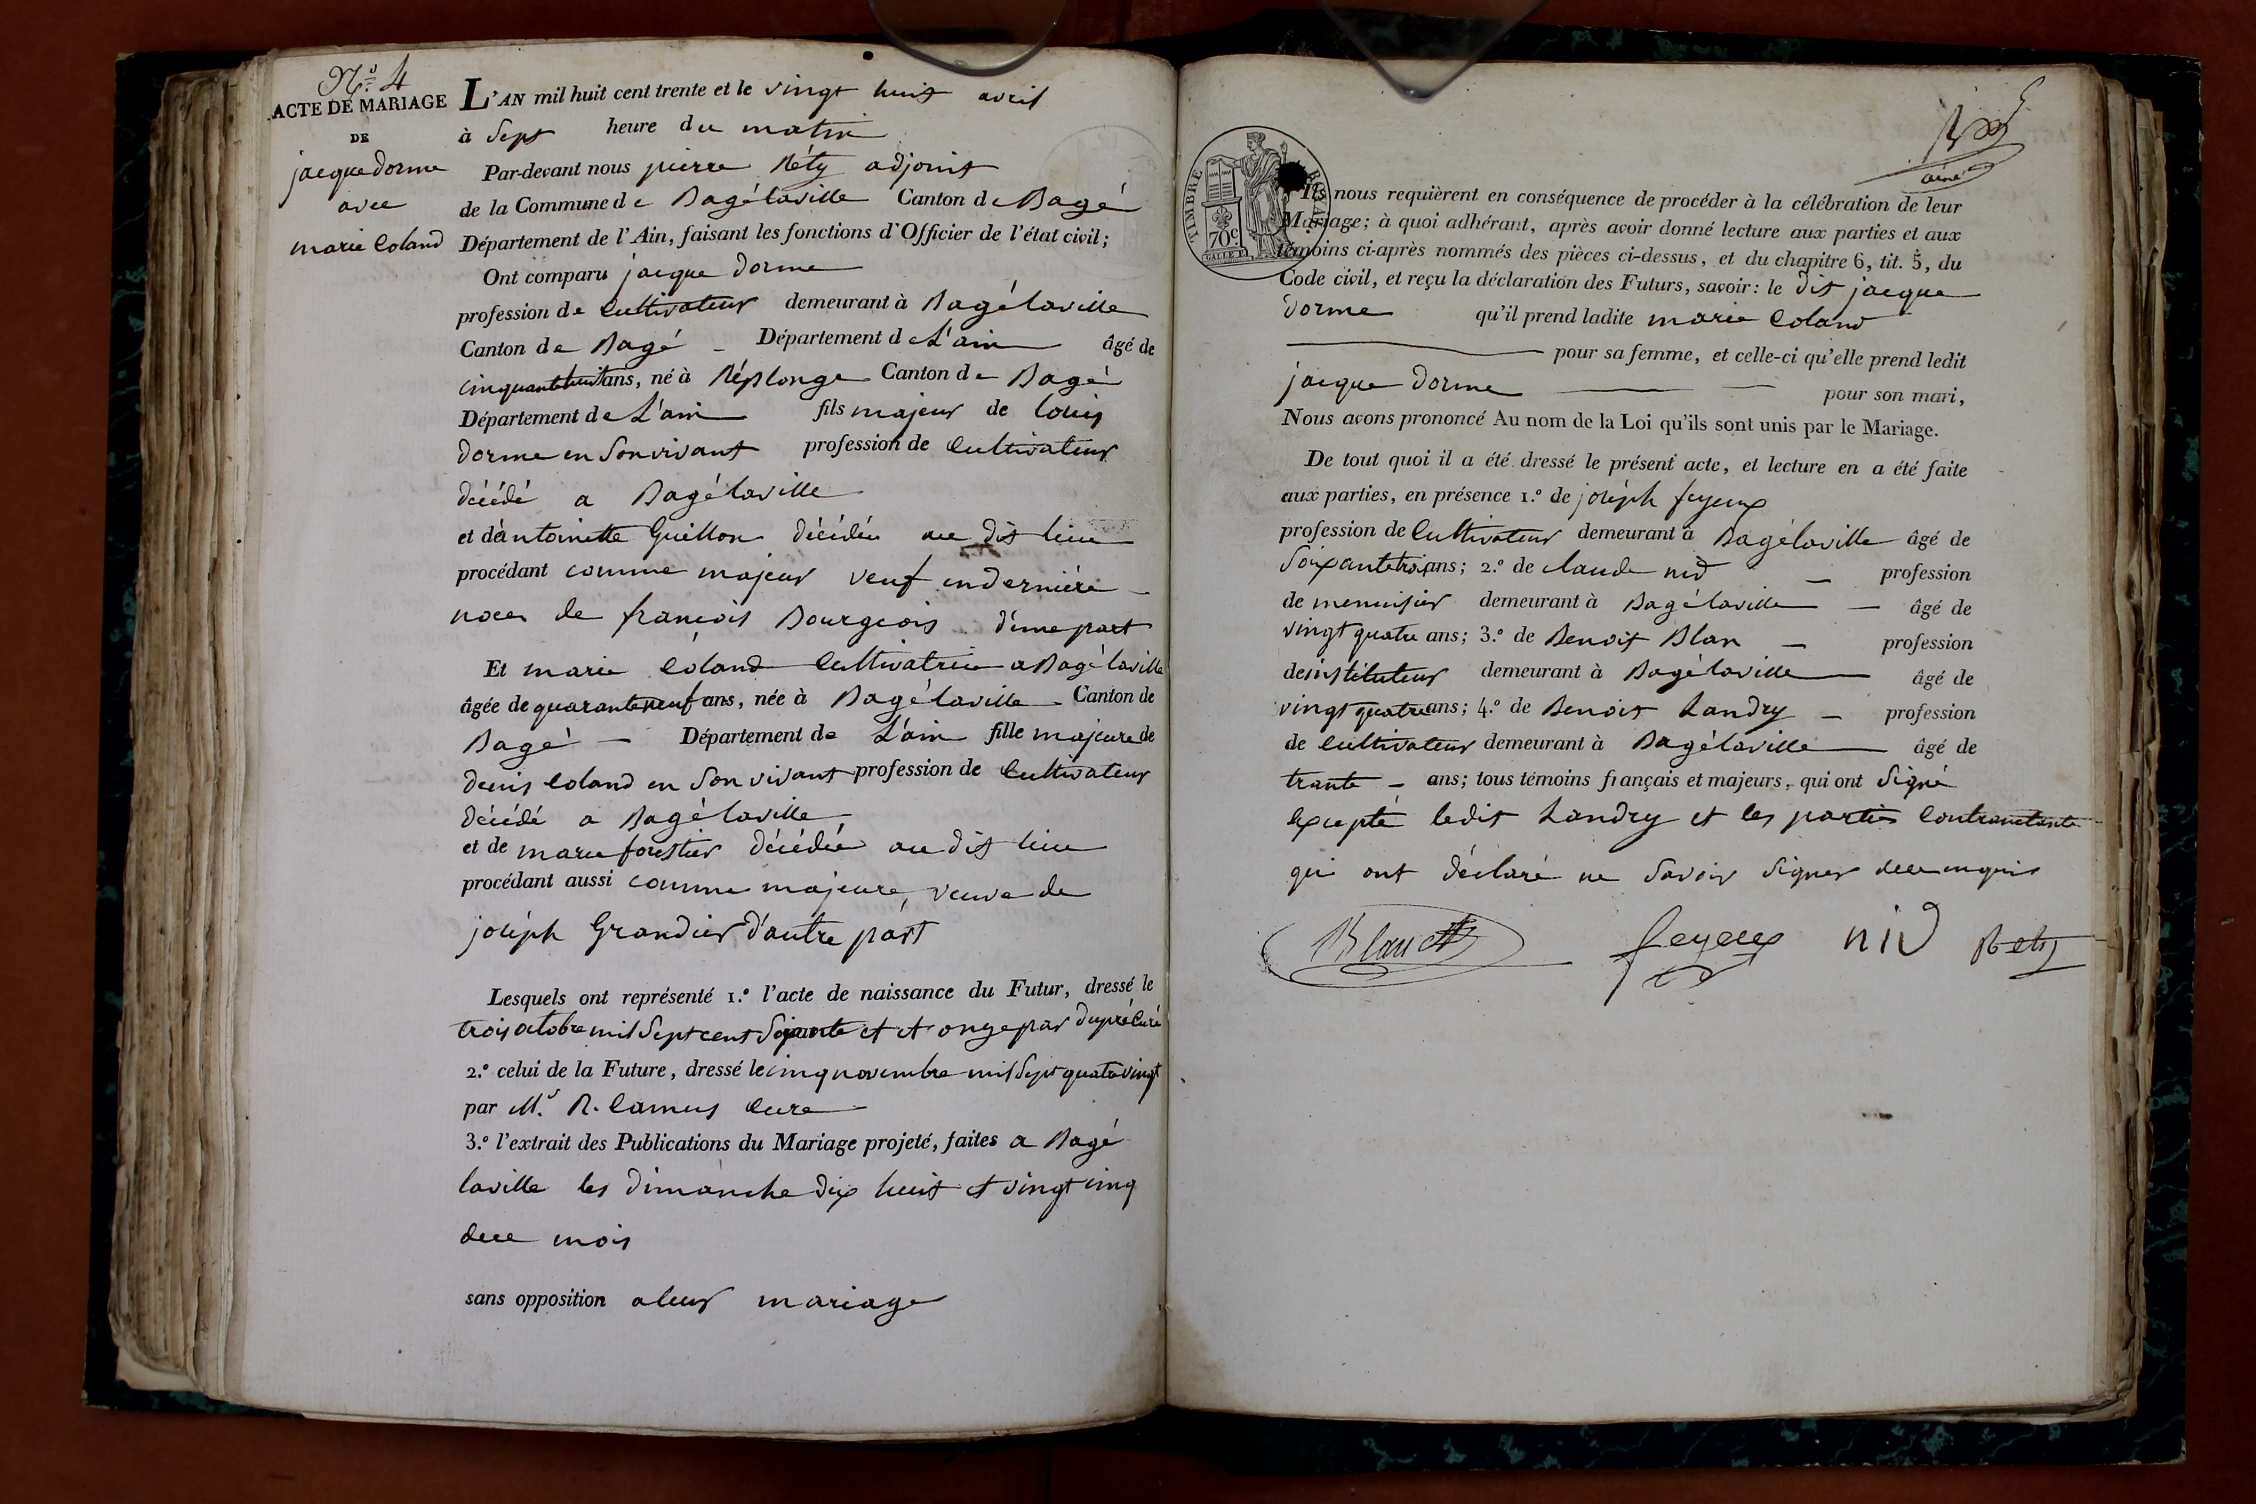 N.º 4
ACTE DE MARIAGE
DE
jacque dorme
avec
marie Coland
L'AN mil huit cent trente et le vingt huit avril
à Sept heure du matin
Par-devant nous pierre Réty adjoint
de la Commune de Bagélaville Canton de Bagé
Département de l'Ain, faisant les fonctions d'Officier de l'état civil;
Ont comparu jacque dorme
profession de Cultivateur demeurant à Bagélaville
Canton de Bagé – Département de L'ain âgé de
cinquantehuit ans, né à Réplonge Canton de Bagé
Département de L'ain fils majeur de louis
dorme en Son vivant profession de Cultivateur
décédé a Bagélaville
et d'antoinette Guillon décédée au dit lieu
procédant comme majeur veuf en dernière
noces de françois Bourgeois d'une part
Et marie Coland Cultivatrice a Bagélaville
âgée de quaranteneuf ans, née à Bagélaville Canton de
Bagé – Département de L'ain fille majeure de
denis Coland en Son vivant profession de Cultivateur
décédé a Bagélaville
et de marie forestier décédée au dit lieu
procédant aussi comme majeure, veuve de
joséph Grandier d'autre part
Lesquels ont représenté 1.º l'acte de naissance du Futur, dressé le
trois octobre mil Sept cent Soixante et et onze par dupré Curé
2.º celui de la Future, dressé le cinq novembre mil Sept quatrevingt
par M.r R. Camus Cure
3.º l'extrait des Publications du Mariage projeté, faites a Bagé
laville les dimanche dix huit et vingt cinq
duu mois
sans opposition a leur mariage
TIMBRE ROYAL
70c
Ils nous requièrent en conséquence de procéder à la célébration de leur
Mariage; à quoi adhérant, après avoir donné lecture aux parties et aux
témoins ci-après nommés des pièces ci-dessus, et du chapitre 6, tit. 5, du
Code civil, et reçu la déclaration des Futurs, savoir: le dit jacque
dorme qu'il prend ladite marie Coland
pour sa femme, et celle-ci qu'elle prend ledit
jacque dorme pour son mari,
Nous avons prononcé Au nom de la Loi qu'ils sont unis par le Mariage.
De tout quoi il a été dressé le présent acte, et lecture en a été faite
aux parties, en présence 1.º de joséph feyeux
profession de Cultivateur demeurant à Bagélaville âgé de
Soixantetrois ans; 2.º de claude nid – profession
de menuisier demeurant à Bagélaville – âgé de
vingt quatre ans; 3.º de Benoit Blan – profession
de instituteur demeurant à Bagélaville âgé de
vingt quatre ans; 4.º de Benoit Landry – profession
de Cultivateur demeurant à Bagélaville âgé de
trante – ans; tous témoins français et majeurs, qui ont Signé
Excepté ledit Landry et les parties Contractante
qui ont déclaré ne Savoir Signer de ce enquis
Blanc feyeux niD Rety